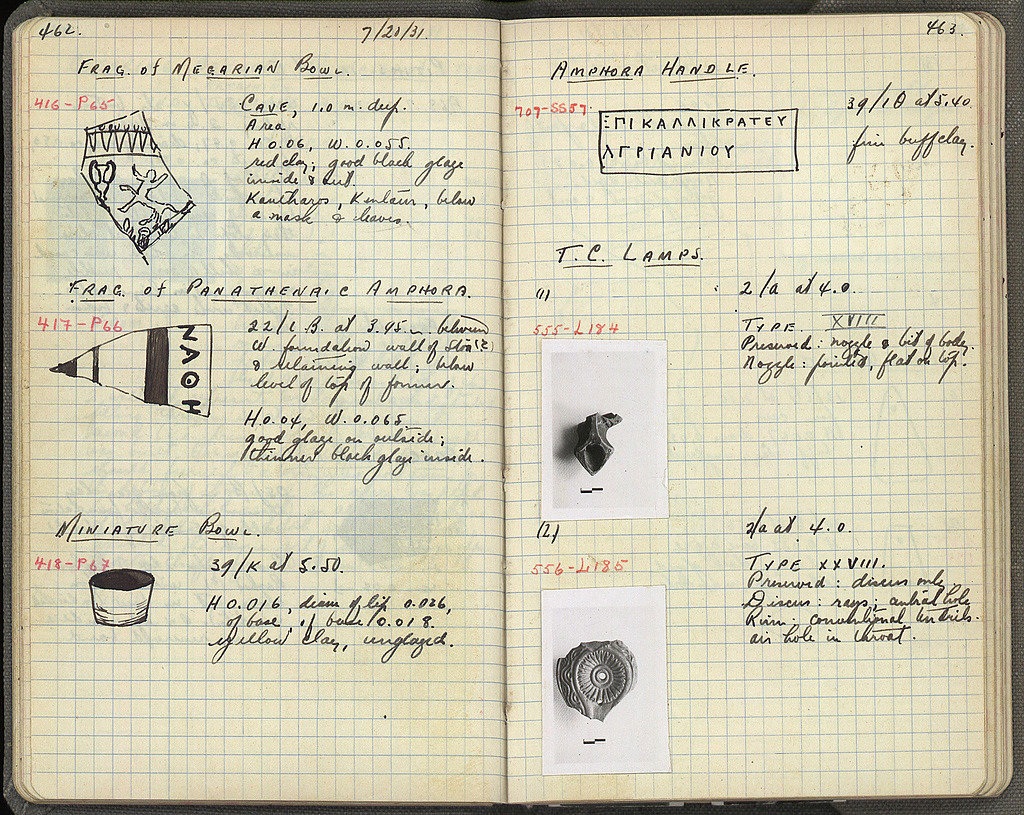 462.
7/20/31.
FRAG. of MEGARIAN BOWL.
416-P65
CAVE, 1.0 m. deep.
Area
H 0.06, W. 0.055.
red clay; good black glaze
inside & out.
Kantharos, Kentaur, below
a mask & leaves.
FRAG. of PANATHENAIC AMPHORA.
417-P66
ΝΑΘΗ
22/ B. at 3.95 m. between
W. foundation wall of Stoa(?)
& retaining wall; below
level of top of former.
H 0.04, W. 0.065
good glaze on outside;
thinner black glaze inside.
MINIATURE BOWL.
418-P67
39/K at 5.50.
H 0.016, diam of lip 0.026,
of base, of base 0.018.
yellow clay, unglazed.
463.
AMPHORA HANDLE.
707-SS57.
39/ at 5.40.
ΕΠΙΚΑΛΛΙΚΡΑΤΕΥ
ΑΓΡΙΑΝΙΟΥ
fine buff clay.
T.C. LAMPS.
(1)
2/a at 4.0.
555-L184
TYPE. XVIII
Preserved: nozzle & bit of body.
Nozzle: pointed, flat on top.
(2)
2/a at 4.0.
556-L185
TYPE XXVIII.
Preserved: discus only
Discus: rays; central hole
Rim: conventional tendrils.
air hole in throat.